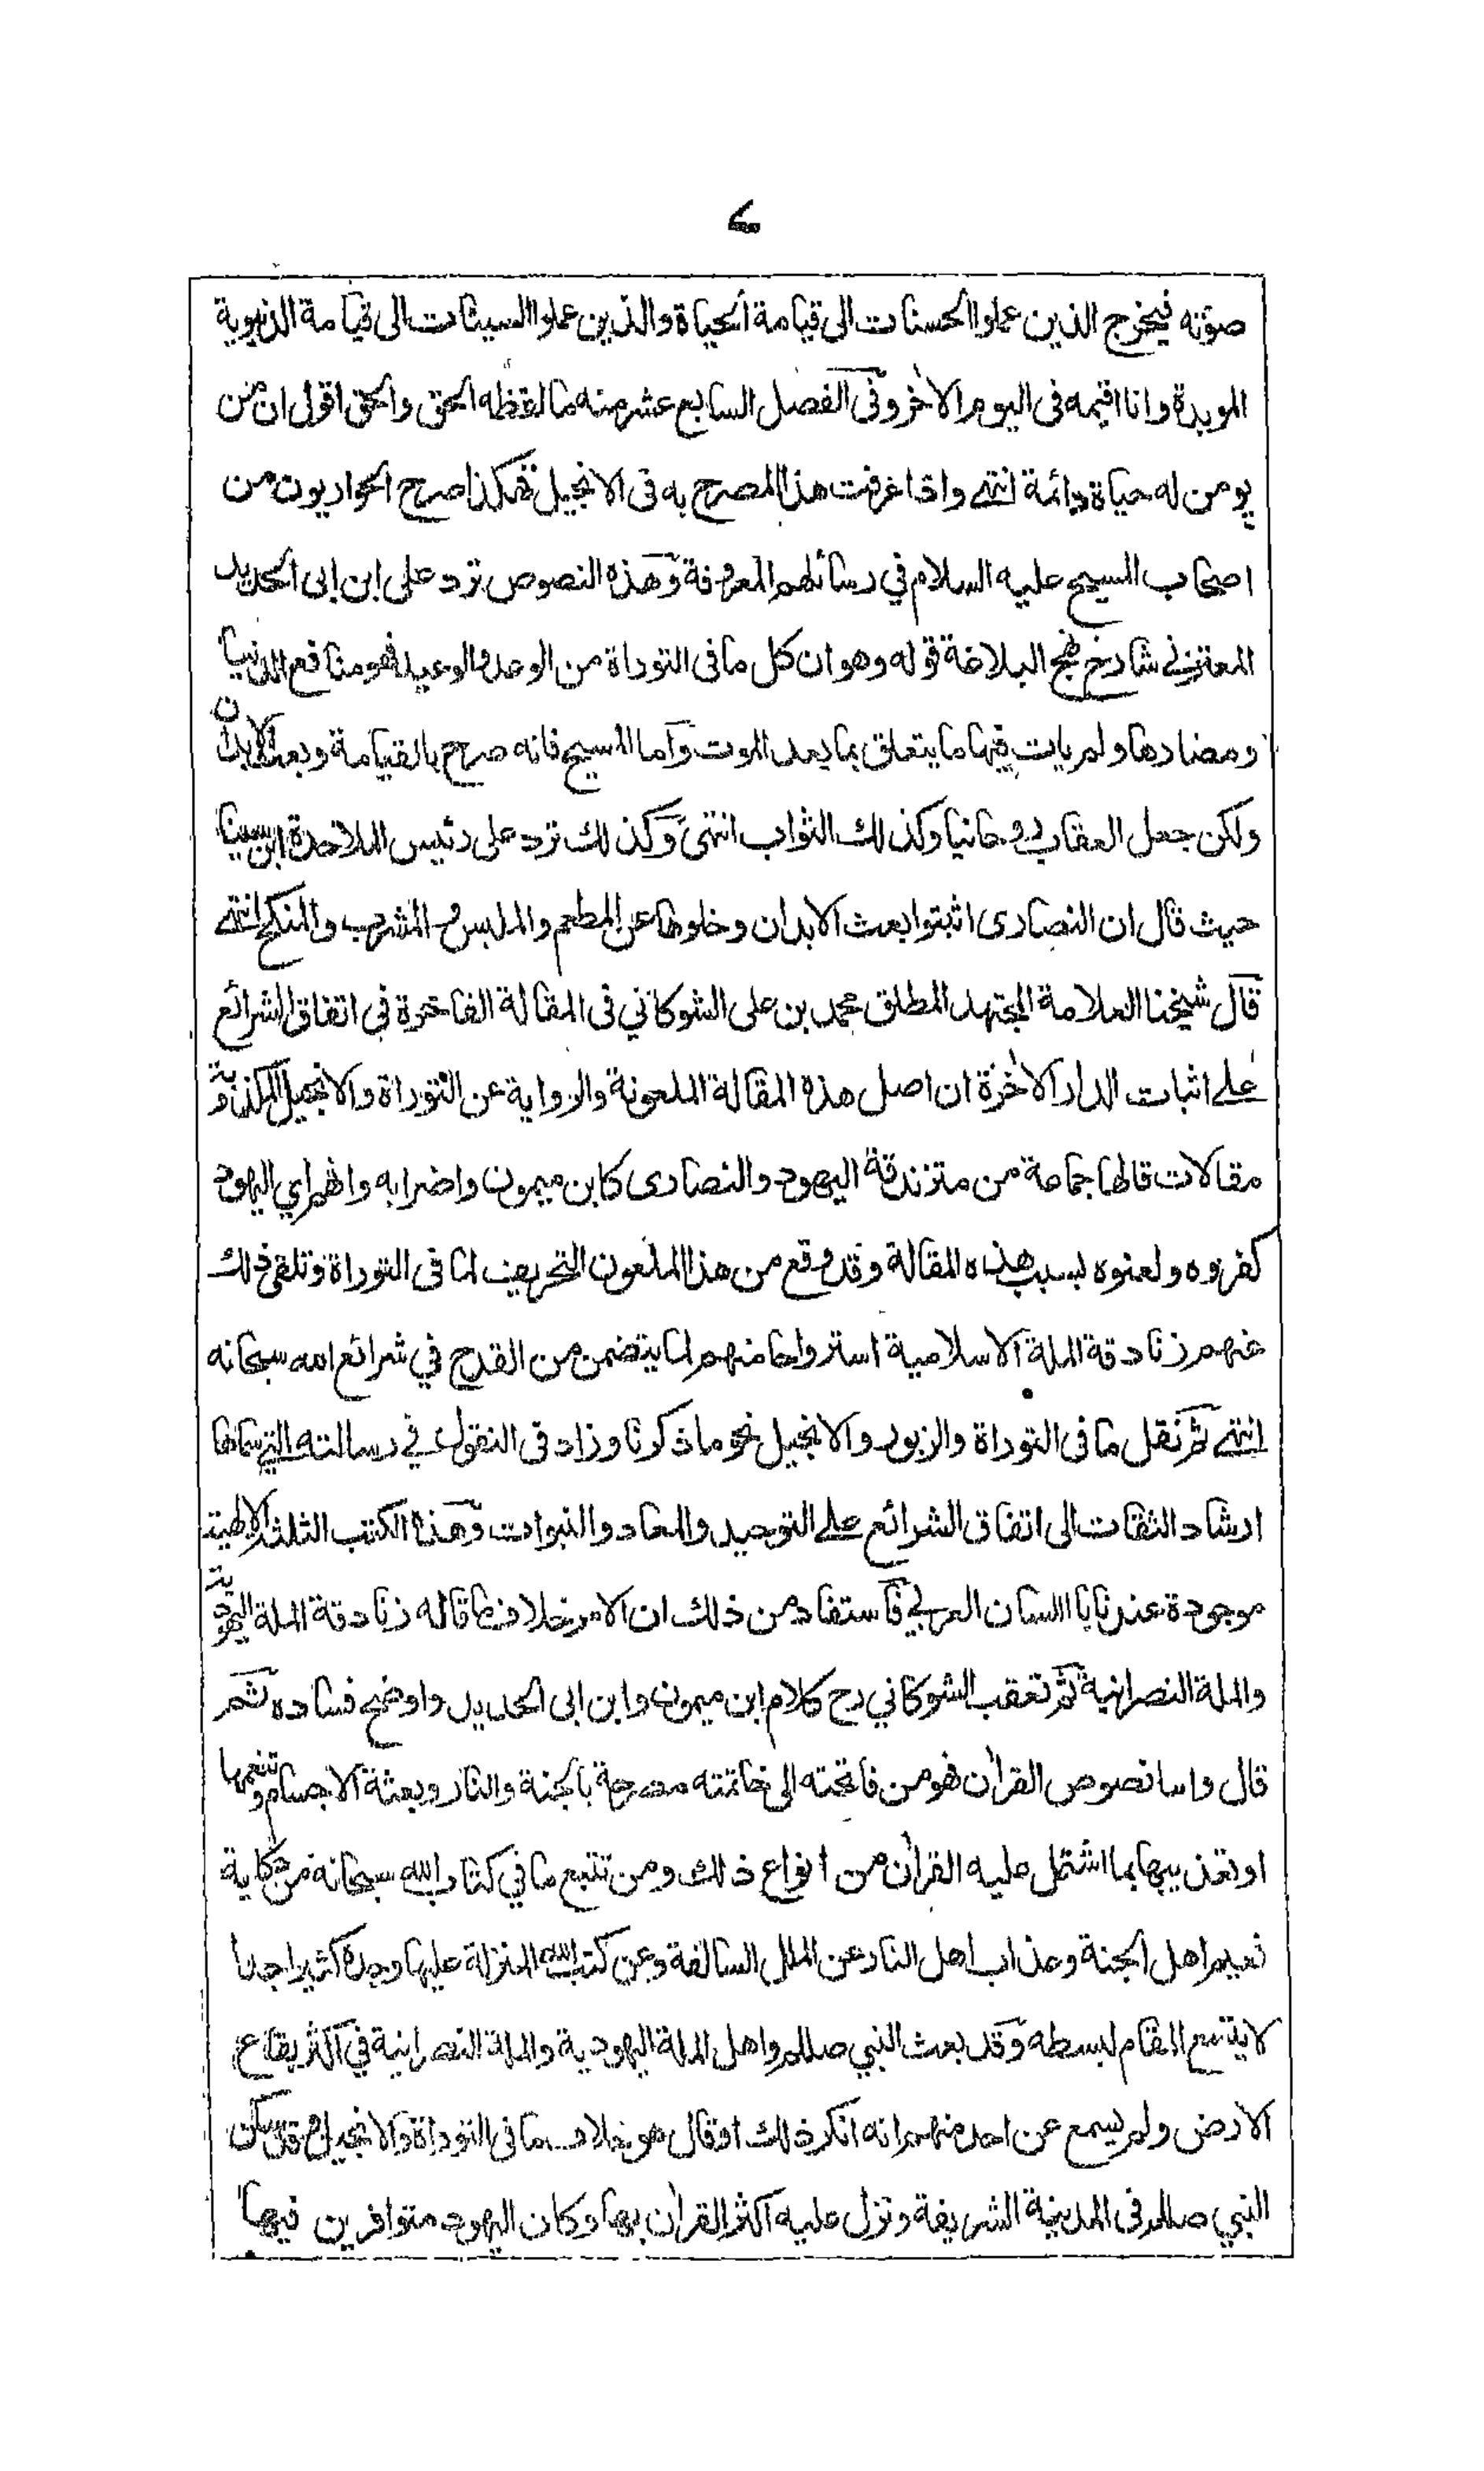 صوته فيخرج الذين عملوا الحسنات الى قيامة الحياة والذين عملوا السيئات الى قيامة الدينوية
الموبدة وانا اقيمه فى اليوم الاخر وفى الفصل السابع عشر منه ما لفظه الحق والحق اقول ان من
يومن له حياة دائمة انتهى واذا عرفت هذا المصرح به فى الانجيل فهكذا صرح الحواريون من
اصحاب المسيح عليه السلام في رسائلهم المعروفة وهذه النصوص ترد على ابن ابى الحديد
المعتزلي شارح نهج البلاغة قوله وهو ان كل ما فى التوراة من الوعد والوعيد فهو منافع الدنيا
ومضارها ولم يات فيها ما يتعلق بما بعد الموت واما المسيح فانه صرح بالقيامة وبعث الابدان
ولكن جعل العقاب روحانيا وكذلك الثواب انتهى وكذلك ترد على رئيس الملاحدة ابن سينا
حيث قال ان النصارى اثبتوا بعث الابدان وخلوها عن المطعم والملبس والمشرب والمنكح انتهى
قال شيخنا العلامة المجتهد المطلق محمد بن على الشوكاني فى المقالة الفاخرة في اتفاق الشرائع
على اثبات الدار الاخرة ان اصل هذه المقالة الملعونة والرواية عن التوراة والانجيل المكذوبة
مقالات قالها جماعة من متزندقة اليهود والنصارى كابن ميمون واضرابه واظهر اي اليهود
كفروه ولعنوه بسبب هذه المقالة وقد وقع من هذا الملعون التحريف لما فى التوراة وتلقى ذلك
عنهم زنادقة الملة الاسلامية استرواحا منهم لما يتضمن من القدح في شرائع الله سبحانه
انتهى ثم نقل ما فى التوراة والزبور والانجيل نحو ما ذكرنا وزاد فى النقول في رسالته التي سماها
ارشاد الثقات الى اتفاق الشرائع على التوحيد والمعاد والنبوات وهذه الكتب الثلثة الالهية
موجودة عندنا باللسان العربي فاستفاد من ذلك ان الامر خلاف ما قاله زنادقة الملة اليهودية
والملة النصرانية ثم تعقب الشوكاني رح كلام ابن ميمون وابن ابى الحديد واوضح فساده ثم
قال واما نصوص القران فهو من فاتحته الى خاتمته مصرحة بالجنة والنار وبعثة الاجسام وتنعمها
او تعذيبها بما اشتمل عليه القران من انواع ذلك ومن تتبع ما في كتاب الله سبحانه من حكاية
نعيم اهل الجنة وعذاب اهل النار عن الملل السالفة وعن كتب الله المنزلة عليها وجده كثيرا جدا
لا يتسع المقام لبسطه وقد بعث النبي صللم واهل الملة اليهودية والملة النصرانية في اكثر بقاع
الارض ولم يسمع عن احد منهم انه انكر ذلك او قال هو خلاف ما فى التوراة والانجيل وقد سكن
النبي صللم فى المدينة الشريفة ونزل عليه اكثر القران بها وكان اليهود متوافرين فيها